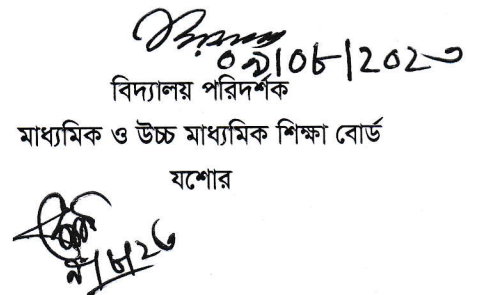 ০৯/০৮/২০২৩
বিদ্যালয় পরিদর্শক
মাধ্যমিক ও উচ্চ মাধ্যমিক শিক্ষা বোর্ড
যশোর
৯/৮/২৩